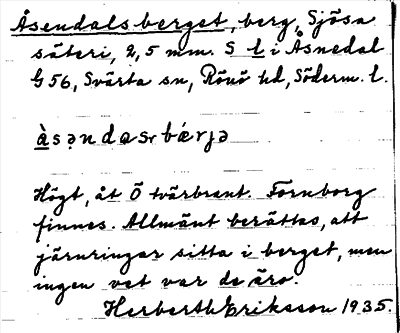 Åsendalsberget, berg, Sjösa
säteri, 2,5 mm. S l i Åsnedal
G 56, Svärta sn, Rönö hd, Söderm. l.
Högt, åt Ö tvärbrant. Fornborg
finnes. Allmänt berättas, att
järnringar sitta i berget, men
ingen vet var de äro.
Herberth Eriksson 1935.